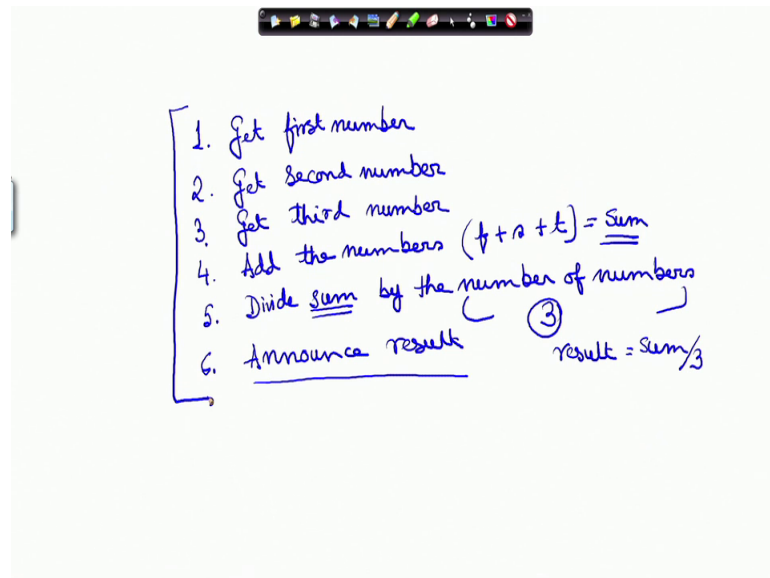 1. Get first number
2. Get second number
3. Get third number
4. Add the numbers (f + s + t) = sum
5. Divide sum by the number of numbers
3
6. Announce result
result = sum/3